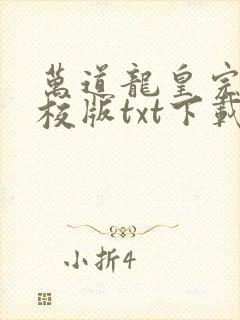 萬道龍皇完
校版txt下載
小折4